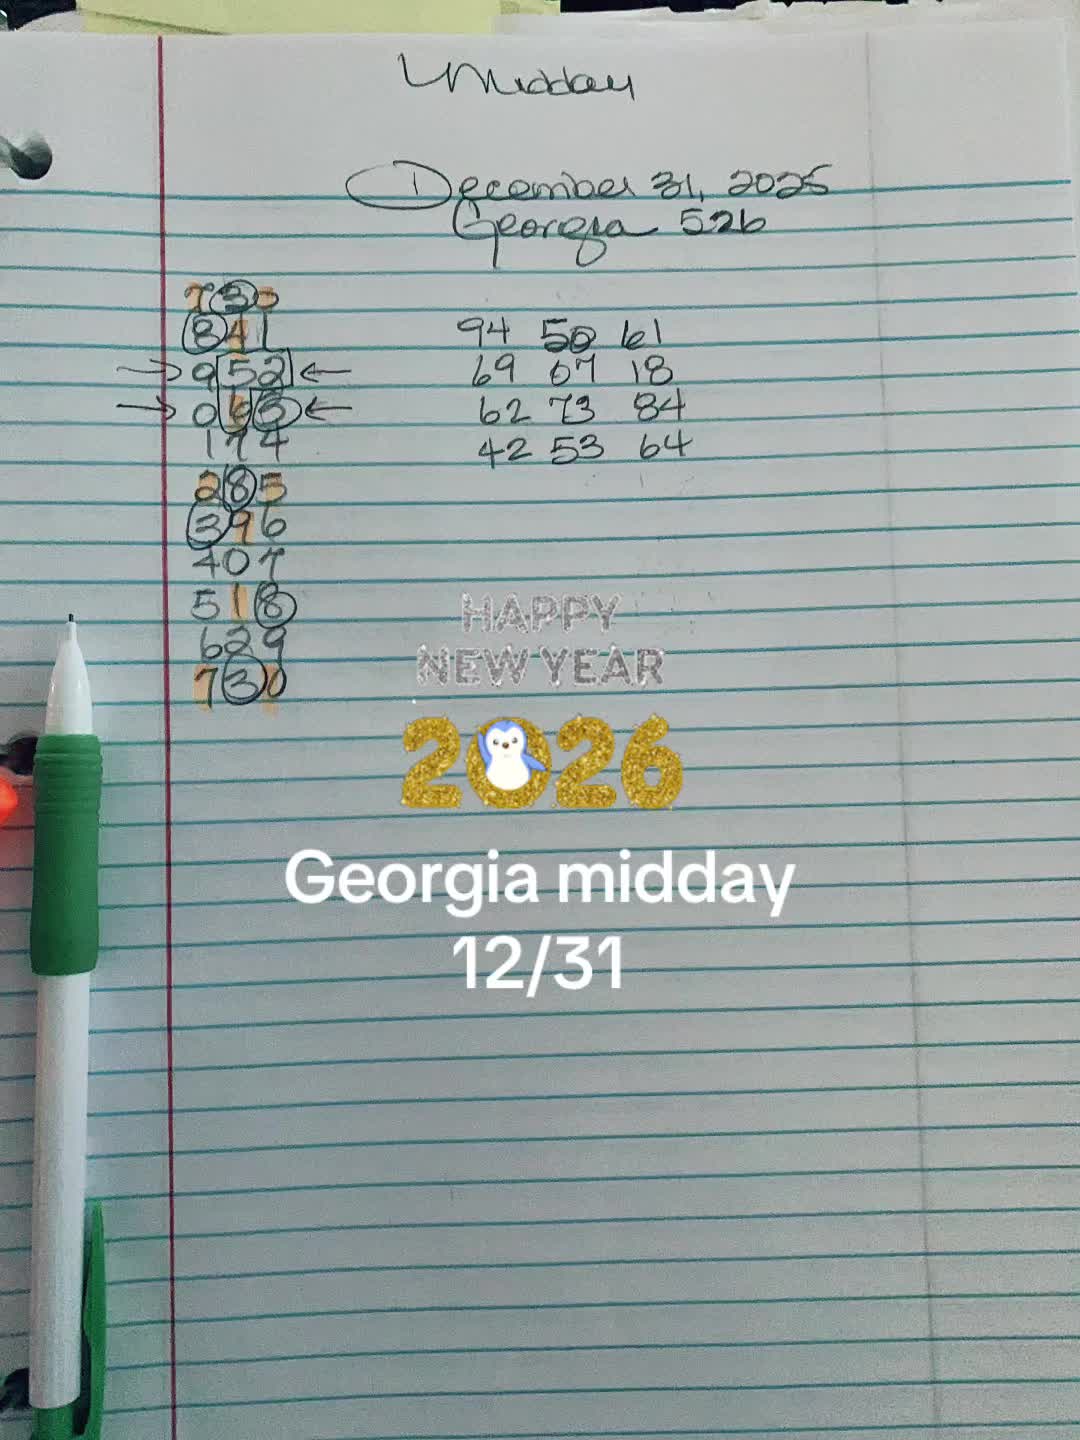 Midday
December 31, 2025
Georgia 526
730
841
952
063
174
285
396
407
518
629
730
94 50 61
69 07 18
62 73 84
42 53 64
HAPPY
NEW YEAR
2026
Georgia midday
12/31